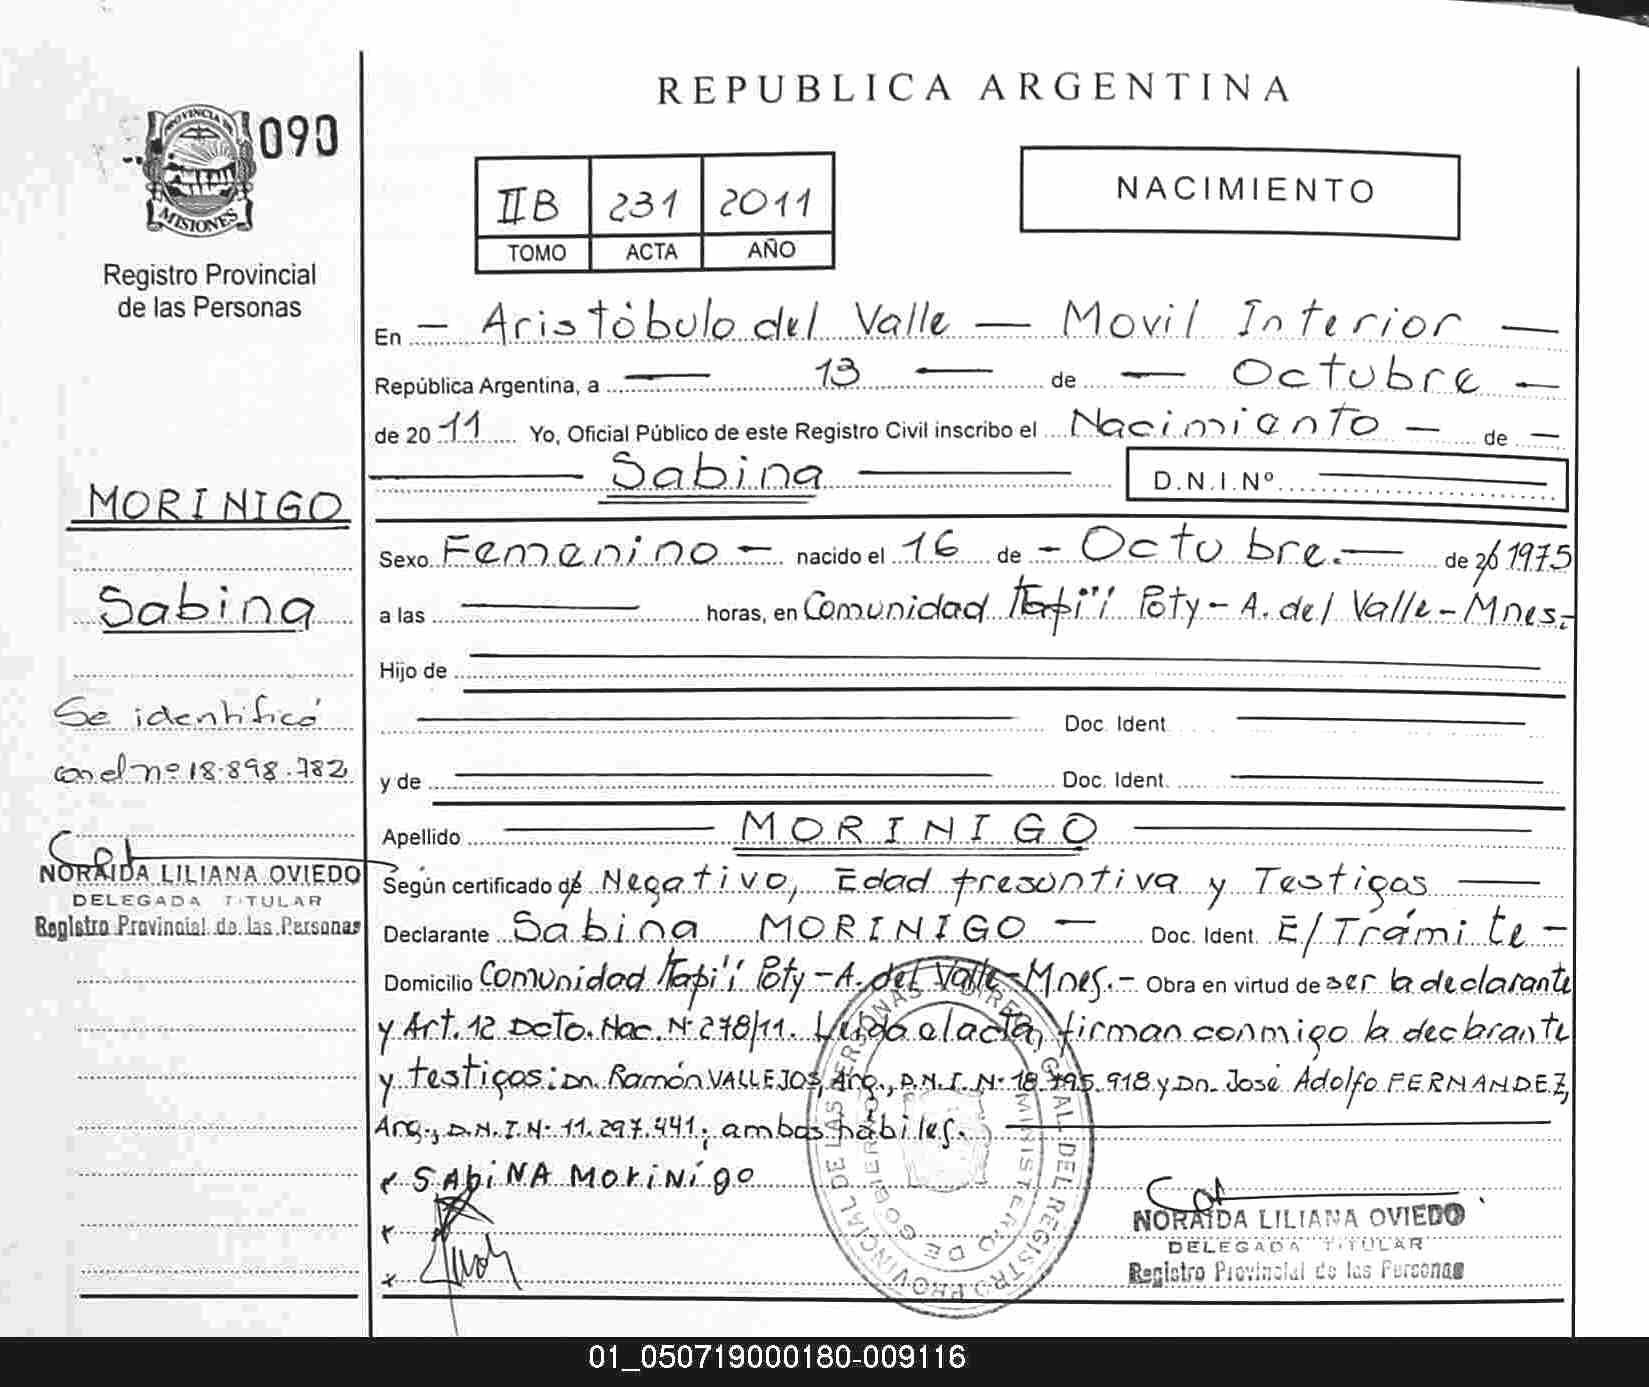 REPUBLICA ARGENTINA
PROVINCIA DE
MISIONES
090
Registro Provincial
de las Personas
IIB 231 2011
TOMO ACTA AÑO
NACIMIENTO
En — Aristóbulo del Valle — Movil Interior —
República Argentina, a — 13 — de — Octubre —
de 20 11 Yo, Oficial Público de este Registro Civil inscribo el Nacimiento — de —
— Sabina — D.N.I.Nº —
MORINIGO
Sabina
Se identificó
con el nº 18.898.782
NORAIDA LILIANA OVIEDO
DELEGADA TITULAR
Registro Provincial de las Personas
Sexo Femenino — nacido el 16 de — Octubre. — de 1975
a las — horas, en Comunidad Poty - A. del Valle - Mnes.-
Hijo de —
— Doc. Ident. —
y de — Doc. Ident. —
Apellido — MORINIGO —
Según certificado de Negativo, Edad presuntiva y Testigos —
Declarante Sabina MORINIGO — Doc. Ident. E/Trámite -
Domicilio Comunidad Poty - A. del Valle - Mnes. - Obra en virtud de ser la declarante
y Art. 12 Dcto. Nac. Nº 278/11. Leída el acta, firman conmigo la declarante
y testigos: Dn. Ramón VALLEJOS, Arg., D.N.I. Nº 18.795.918 y Dn. José Adolfo FERNANDEZ,
Arg., D.N.I. Nº 11.297.441; ambos hábiles. —
x SAbiNA MoriNigo
x
x
DIREC. GRAL. DEL REGISTRO PROVINCIAL DE LAS PERSONAS
MINISTERIO DE GOBIERNO
NORAIDA LILIANA OVIEDO
DELEGADA TITULAR
Registro Provincial de las Personas
01_050719000180-009116